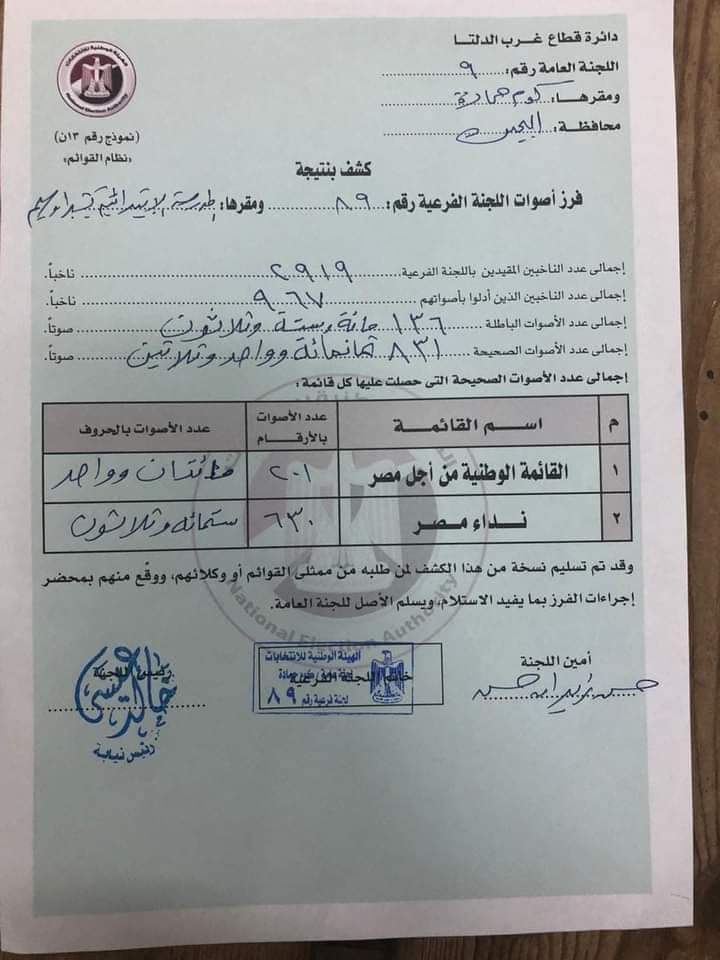 دائرة قطاع غرب الدلتا
اللجنة العامة رقم: ٩
ومقرها: كوم حمادة
محافظة: البحيرة
الهيئة الوطنية للانتخابات
National Election Authority
(نموذج رقم ١٣ن)
«نظام القوائم»
كشف بنتيجة
فرز أصوات اللجنة الفرعية رقم: ٨٩ ومقرها: المدرسة الابتدائية
إجمالى عدد الناخبين المقيدين باللجنة الفرعية ٢٩١٩ ناخباً.
إجمالى عدد الناخبين الذين أدلوا بأصواتهم ٩٦٧ ناخباً.
إجمالى عدد الأصوات الباطلة ١٣٦ مائة وستة وثلاثون صوتاً.
إجمالى عدد الأصوات الصحيحة ٨٣١ ثمانمائة وواحد وثلاثين صوتاً.
إجمالى عدد الأصوات الصحيحة التى حصلت عليها كل قائمة:
م اسم القائمة عدد الأصوات بالأرقام عدد الأصوات بالحروف
١ القائمة الوطنية من أجل مصر ٢٠١ مائتان وواحد
٢ نداء مصر ٦٣٠ ستمائة وثلاثون
وقد تم تسليم نسخة من هذا الكشف لمن طلبه من ممثلى القوائم أو وكلائهم، ووقع منهم بمحضر
إجراءات الفرز بما يفيد الاستلام، ويسلم الأصل للجنة العامة.
National Election Authority
أمين اللجنة
خاتم اللجنة الفرعية
رئيس اللجنة
الهيئة الوطنية للانتخابات
لجنة فرعية رقم ٨٩
رئيس نيابة